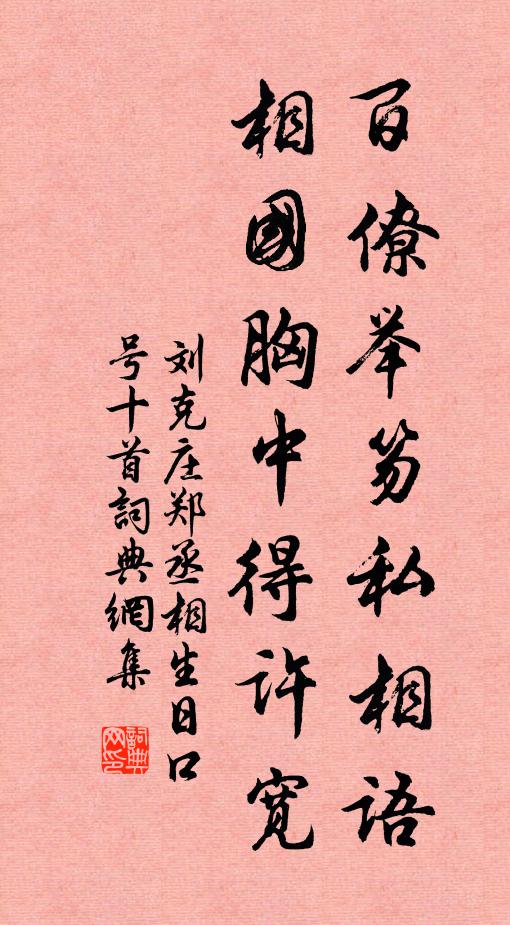 百僚举笏私相语
相國胸中得许宽
刘克庄郑丞相生日口
号十首詞典網集
詞典网印